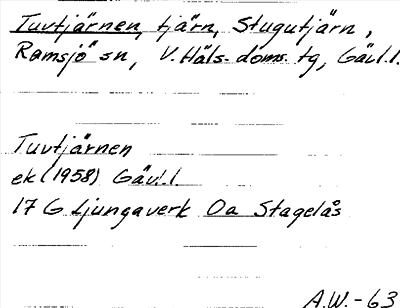 Tuvtjärnen, tjärn, Stugutjärn,
Ramsjö sn, V. Häls. doms. tg, Gävl.l.
Tuvtjärnen
ek (1958) Gävl.l.
17 G Ljungaverk 0a Stagelås
A.W.-63